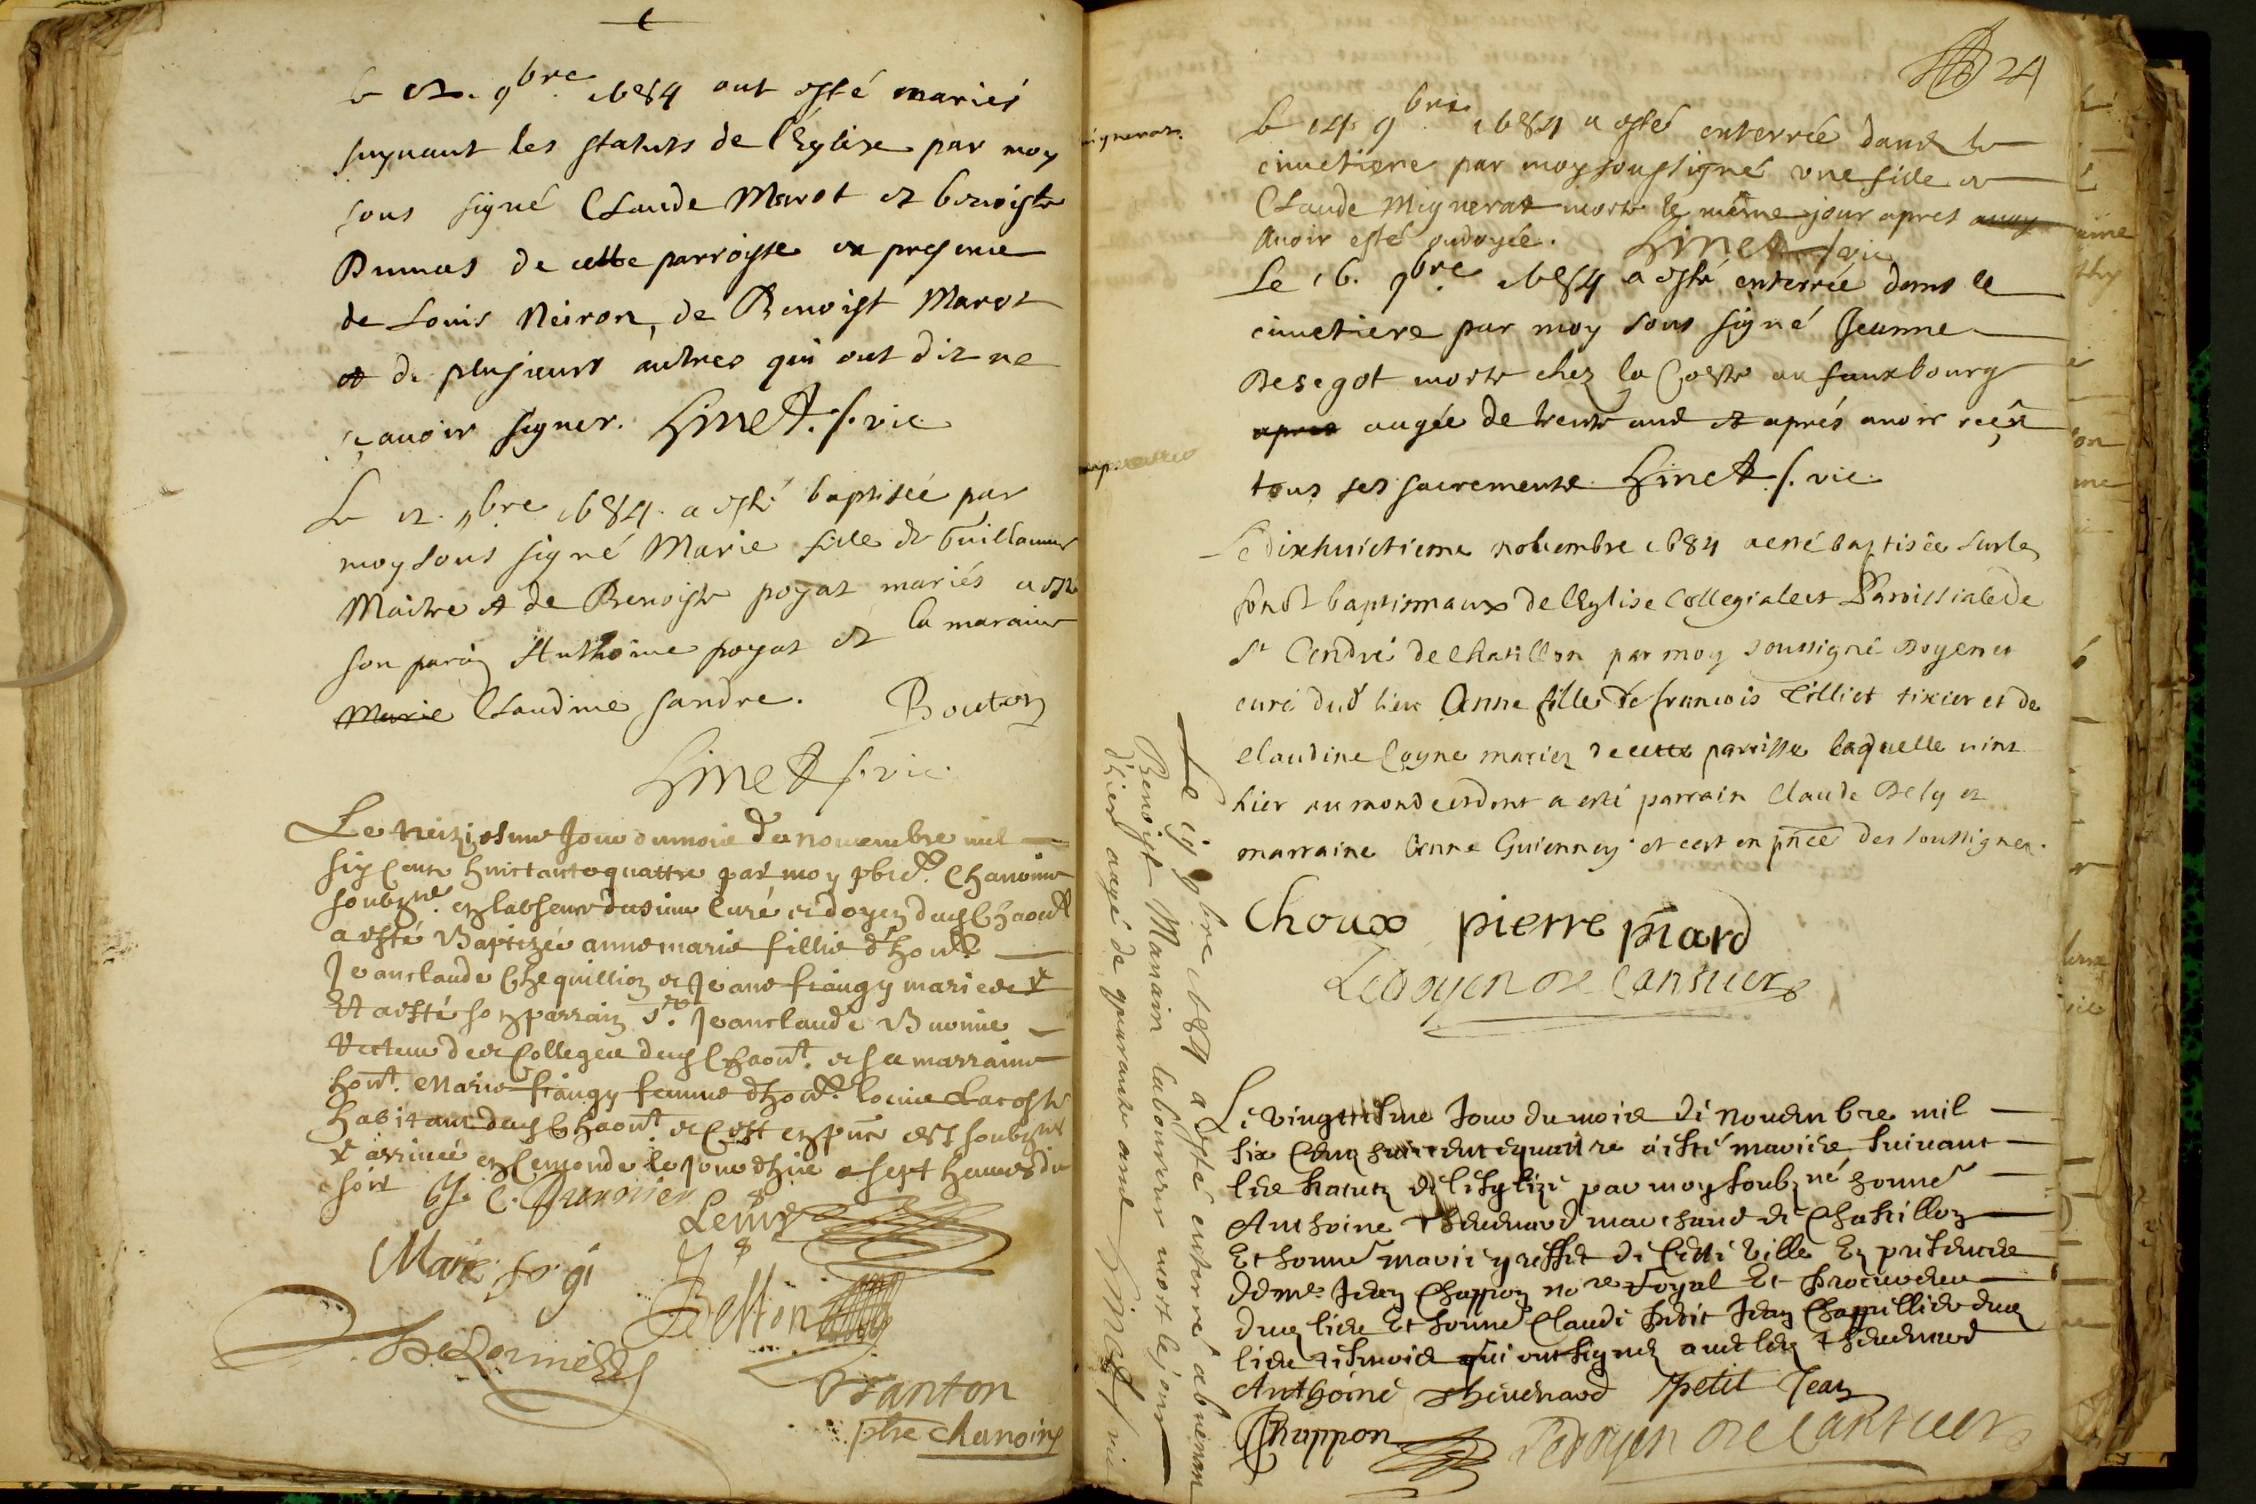 Le 12. 9bre 1684 ont esté mariés
suyuant les statuts de l'Eglize par moy
sous signé Claude Marot et benoiste
Dumas de cette parroisse en presence
de Louis Neiron, de Benoist Marot
et de plusieurs autres qui ont dit ne
sçauoir signer. Linet. s. vic
Le 12. 9bre 1684. a esté baptisée par
moy sous signé Marie fille de Guillaume
Maitre et de Benoiste poyat mariés a esté
son parain Anthoine poyat et la maraine
Marie Claudine sandre. Bouton
Linet s. vic.
Le treiziesme Jour du mois de nouembre mil
six cent huictante quattre par moy pbre Chanoine
soubzné en labsence du sieur Curé et doyen dud
a esté Baptizée anne marie fillie d'hon
Jeanclaude et Jeane frangy mariés
Et a esté son parrain Sr Jeanclaude
Recteur des Colleges dud et sa marraine
hont. Marie frangy femme d'hon. Louis Lacoste
habitant dud et Cest en pnce des soubznés
arriuée en Cemonde le Jour d'hier a sept heures du
soir
Marie frgi
Belton
DeLormes
Branton
pbre chanoine
24
Mignerat
Le 14 9bre 1684 a esté enterrée dans le
cimetiere par moy soussigné vne fille de
Claude Mignerat morte le même jour apres auoy
auoir esté ondoyée. Linet s. vic
Le 16. 9bre 1684 a esté enterrée dans le
cimetiere par moy sous signé Jeanne
Desegot morte chez la Coste au fauxbourg
apres aagée de trente ans et aprés auoir reçeu
tous ses sacrements Linet. s. vic.
Le dixhuictieme nobembre 1684 a esté baptisée sur les
fonds baptismaux de l'Eglise Collegiale et Paroissiale de
St Andre de Chatillon par moy soussigné Doyen et
curé dud lieu Anne fille de francois Tilliet tixier et de
Claudine Coyne mariez de cette parroisse laquelle vint
hier au monde et dont a esté parrain Claude Dely et
marraine Anne Guienney et cest en pnce des soussignez.
Choux pierre piard
Ledoyen de Cansuers
Le 19 9bre 1684 a esté enterré abuenan
Benoist Manain laboureur mort le jour
d'hier aagé de quarante ans Linet s. vic
Le vingtiesme Jour du mois de nouembre mil
six Cent huictante quattre a esté mariée suiuant
les statuts de leglize par moy soubzné honné
Anthoine Theuenard marchand de Chastillon
Et honné marie greffet de Cette Ville En presence
de me Jean Chappon nore Royal Et Procureur
dud lieu Et honné Claude petit Jean Chappellier dud
lieu tesmoins qui ont signez auec led Theuenard
Anthoine Theuenard petit Jean
Chappon Ledoyen de Cansuers